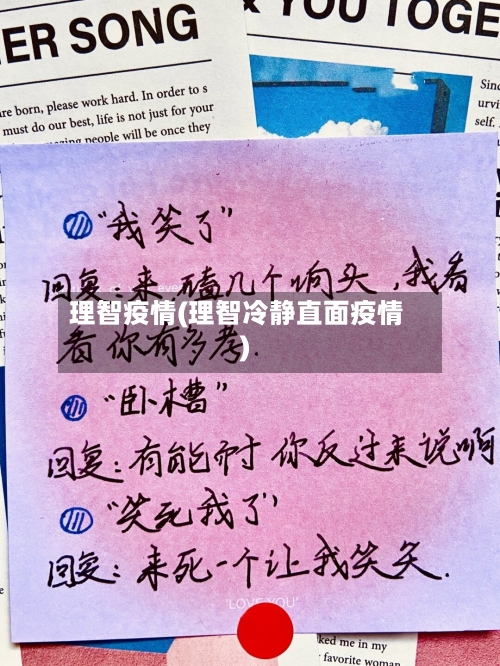 ER SONG
YOU TOGE
re born, please work hard. In order to s
must do our best, life is not just for your
people will be once they
Sinc
urvi
self.
"我笑了"
回复:来磕几个响头,我看
看你有多孝.
理智疫情(理智冷静直面疫情
)
"卧槽"
回复:有能耐你反过来说啊
"笑死我了"
回复:来死一个让我笑笑.
'LOVE YOU'
ked me in my
favorite woman